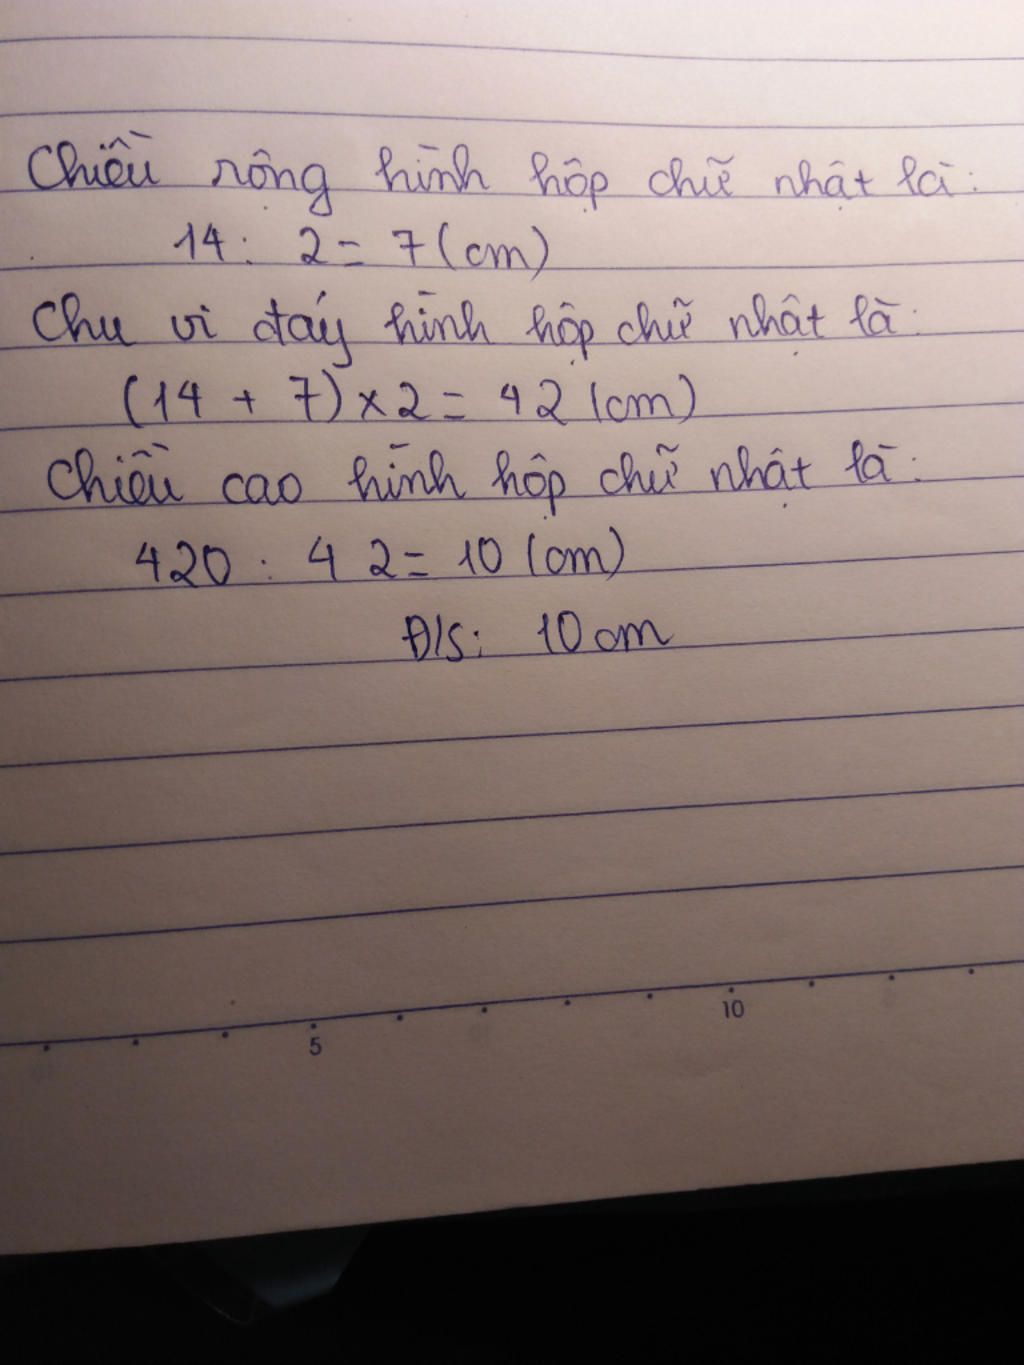 Chiều rộng hình hộp chữ nhật là:
14 : 2 = 7 (cm)
Chu vi đáy hình hộp chữ nhật là:
(14 + 7) x 2 = 42 (cm)
Chiều cao hình hộp chữ nhật là:
420 : 42 = 10 (cm)
Đ/S: 10 cm
5 10